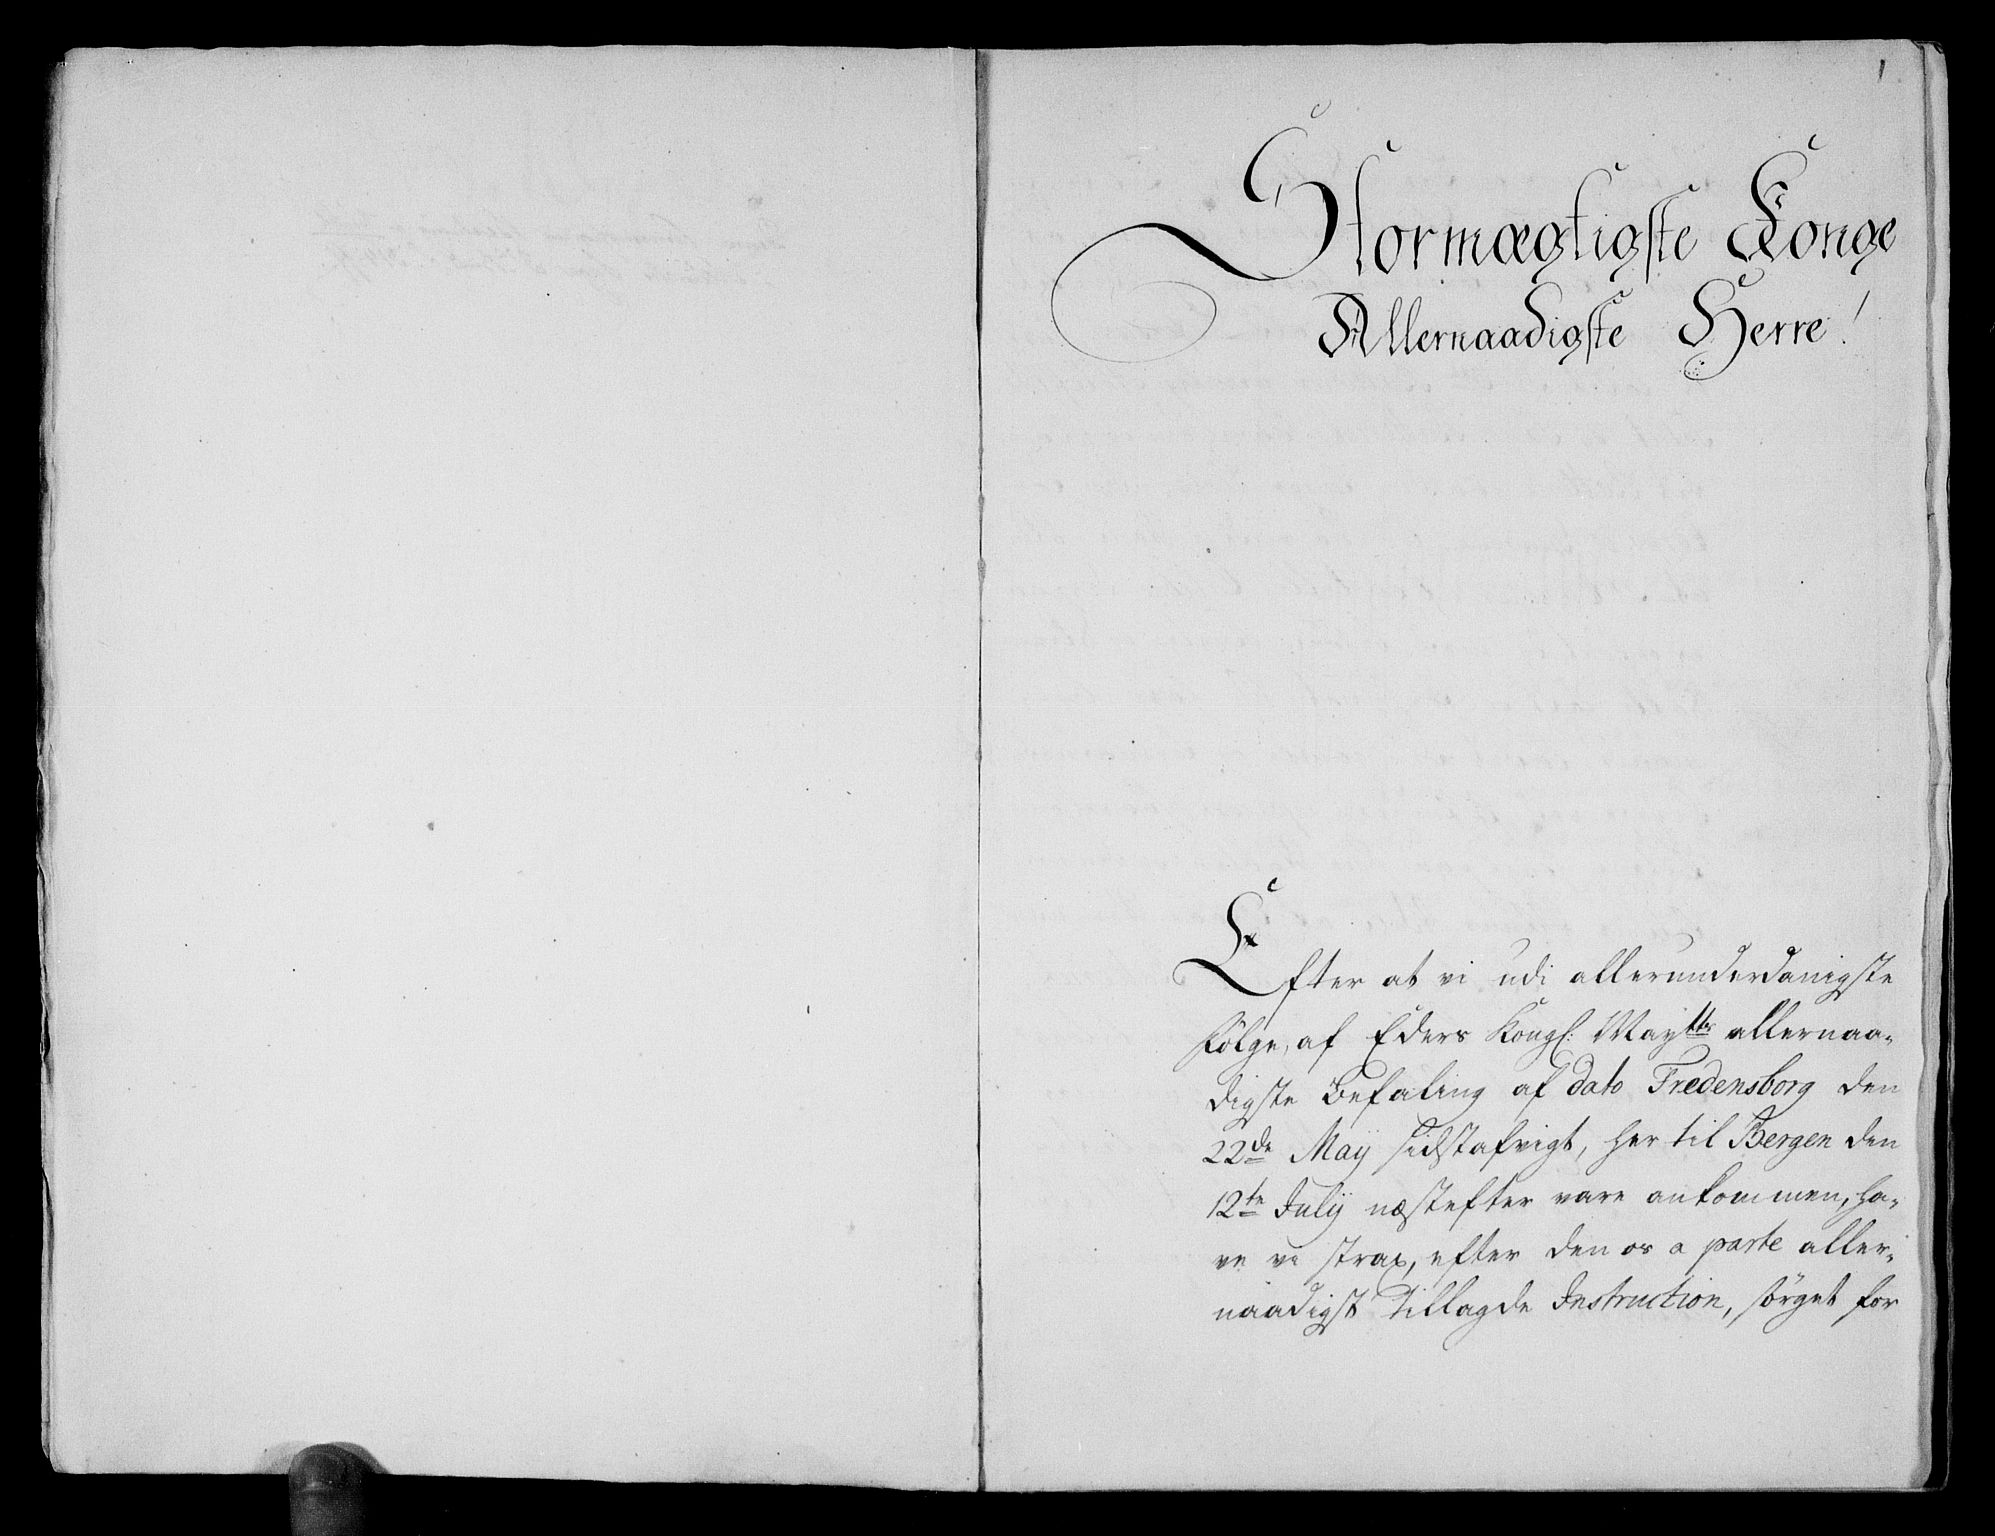 1
Stormægtigste Konge
Allernaadigste Herre!
Efter at vi udi allerunderdanigste
følge, af Eders Kongl: May.tts allernaa-
digste Befaling af dato Fredensborg den
22de Maÿ sidstafvigt, her til Bergen den
12te Julÿ næstefter vare ankommen, ha-
ve vi strax, efter den os a parte aller-
naadigst tillagde Instruction, sørget for